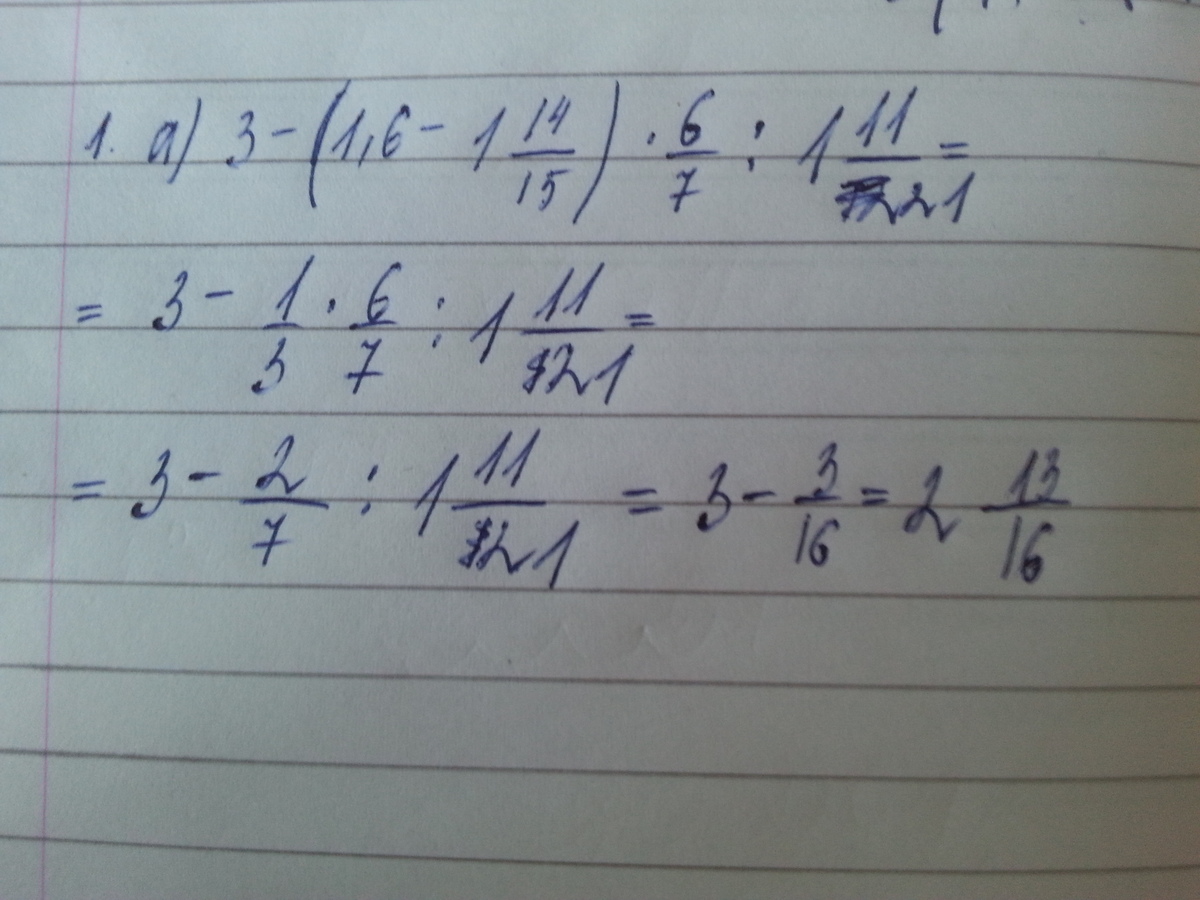 1. а) 3 - (1,6 - 1 14/15) · 6/7 : 1 11/21 =
= 3 - 1/3 · 6/7 : 1 11/21 =
= 3 - 2/7 : 1 11/21 = 3 - 3/16 = 2 13/16